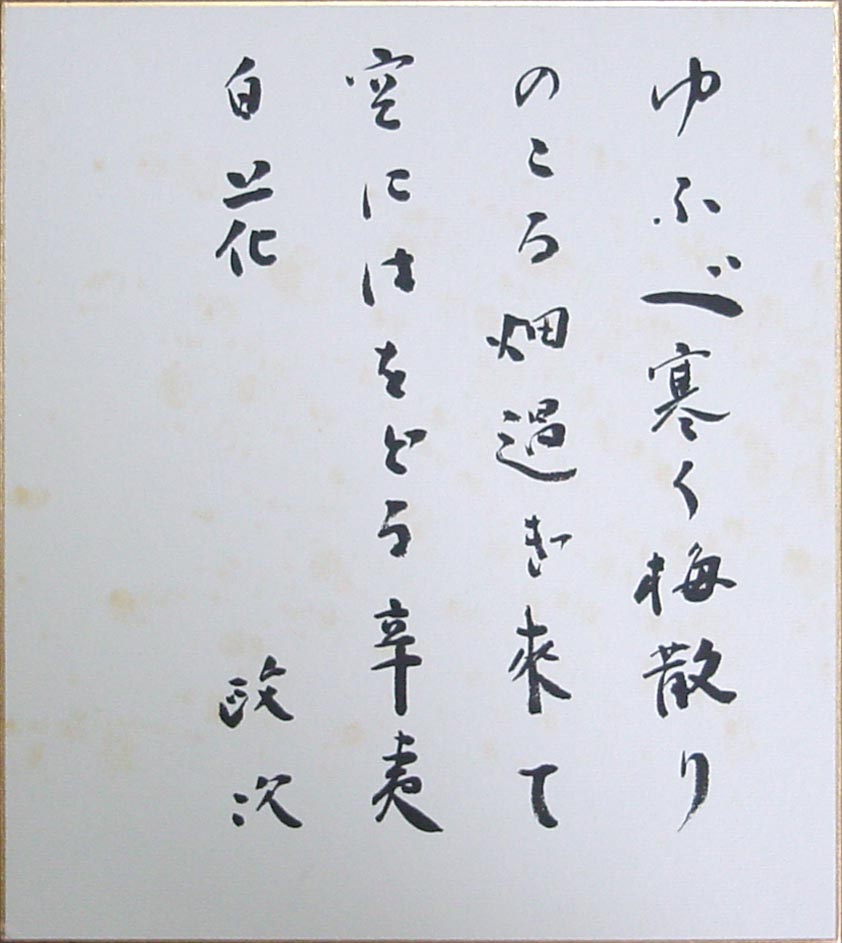 ゆふべ寒く梅散り
のこる畑過ぎ来て
空にはをどる辛夷
白花
政次